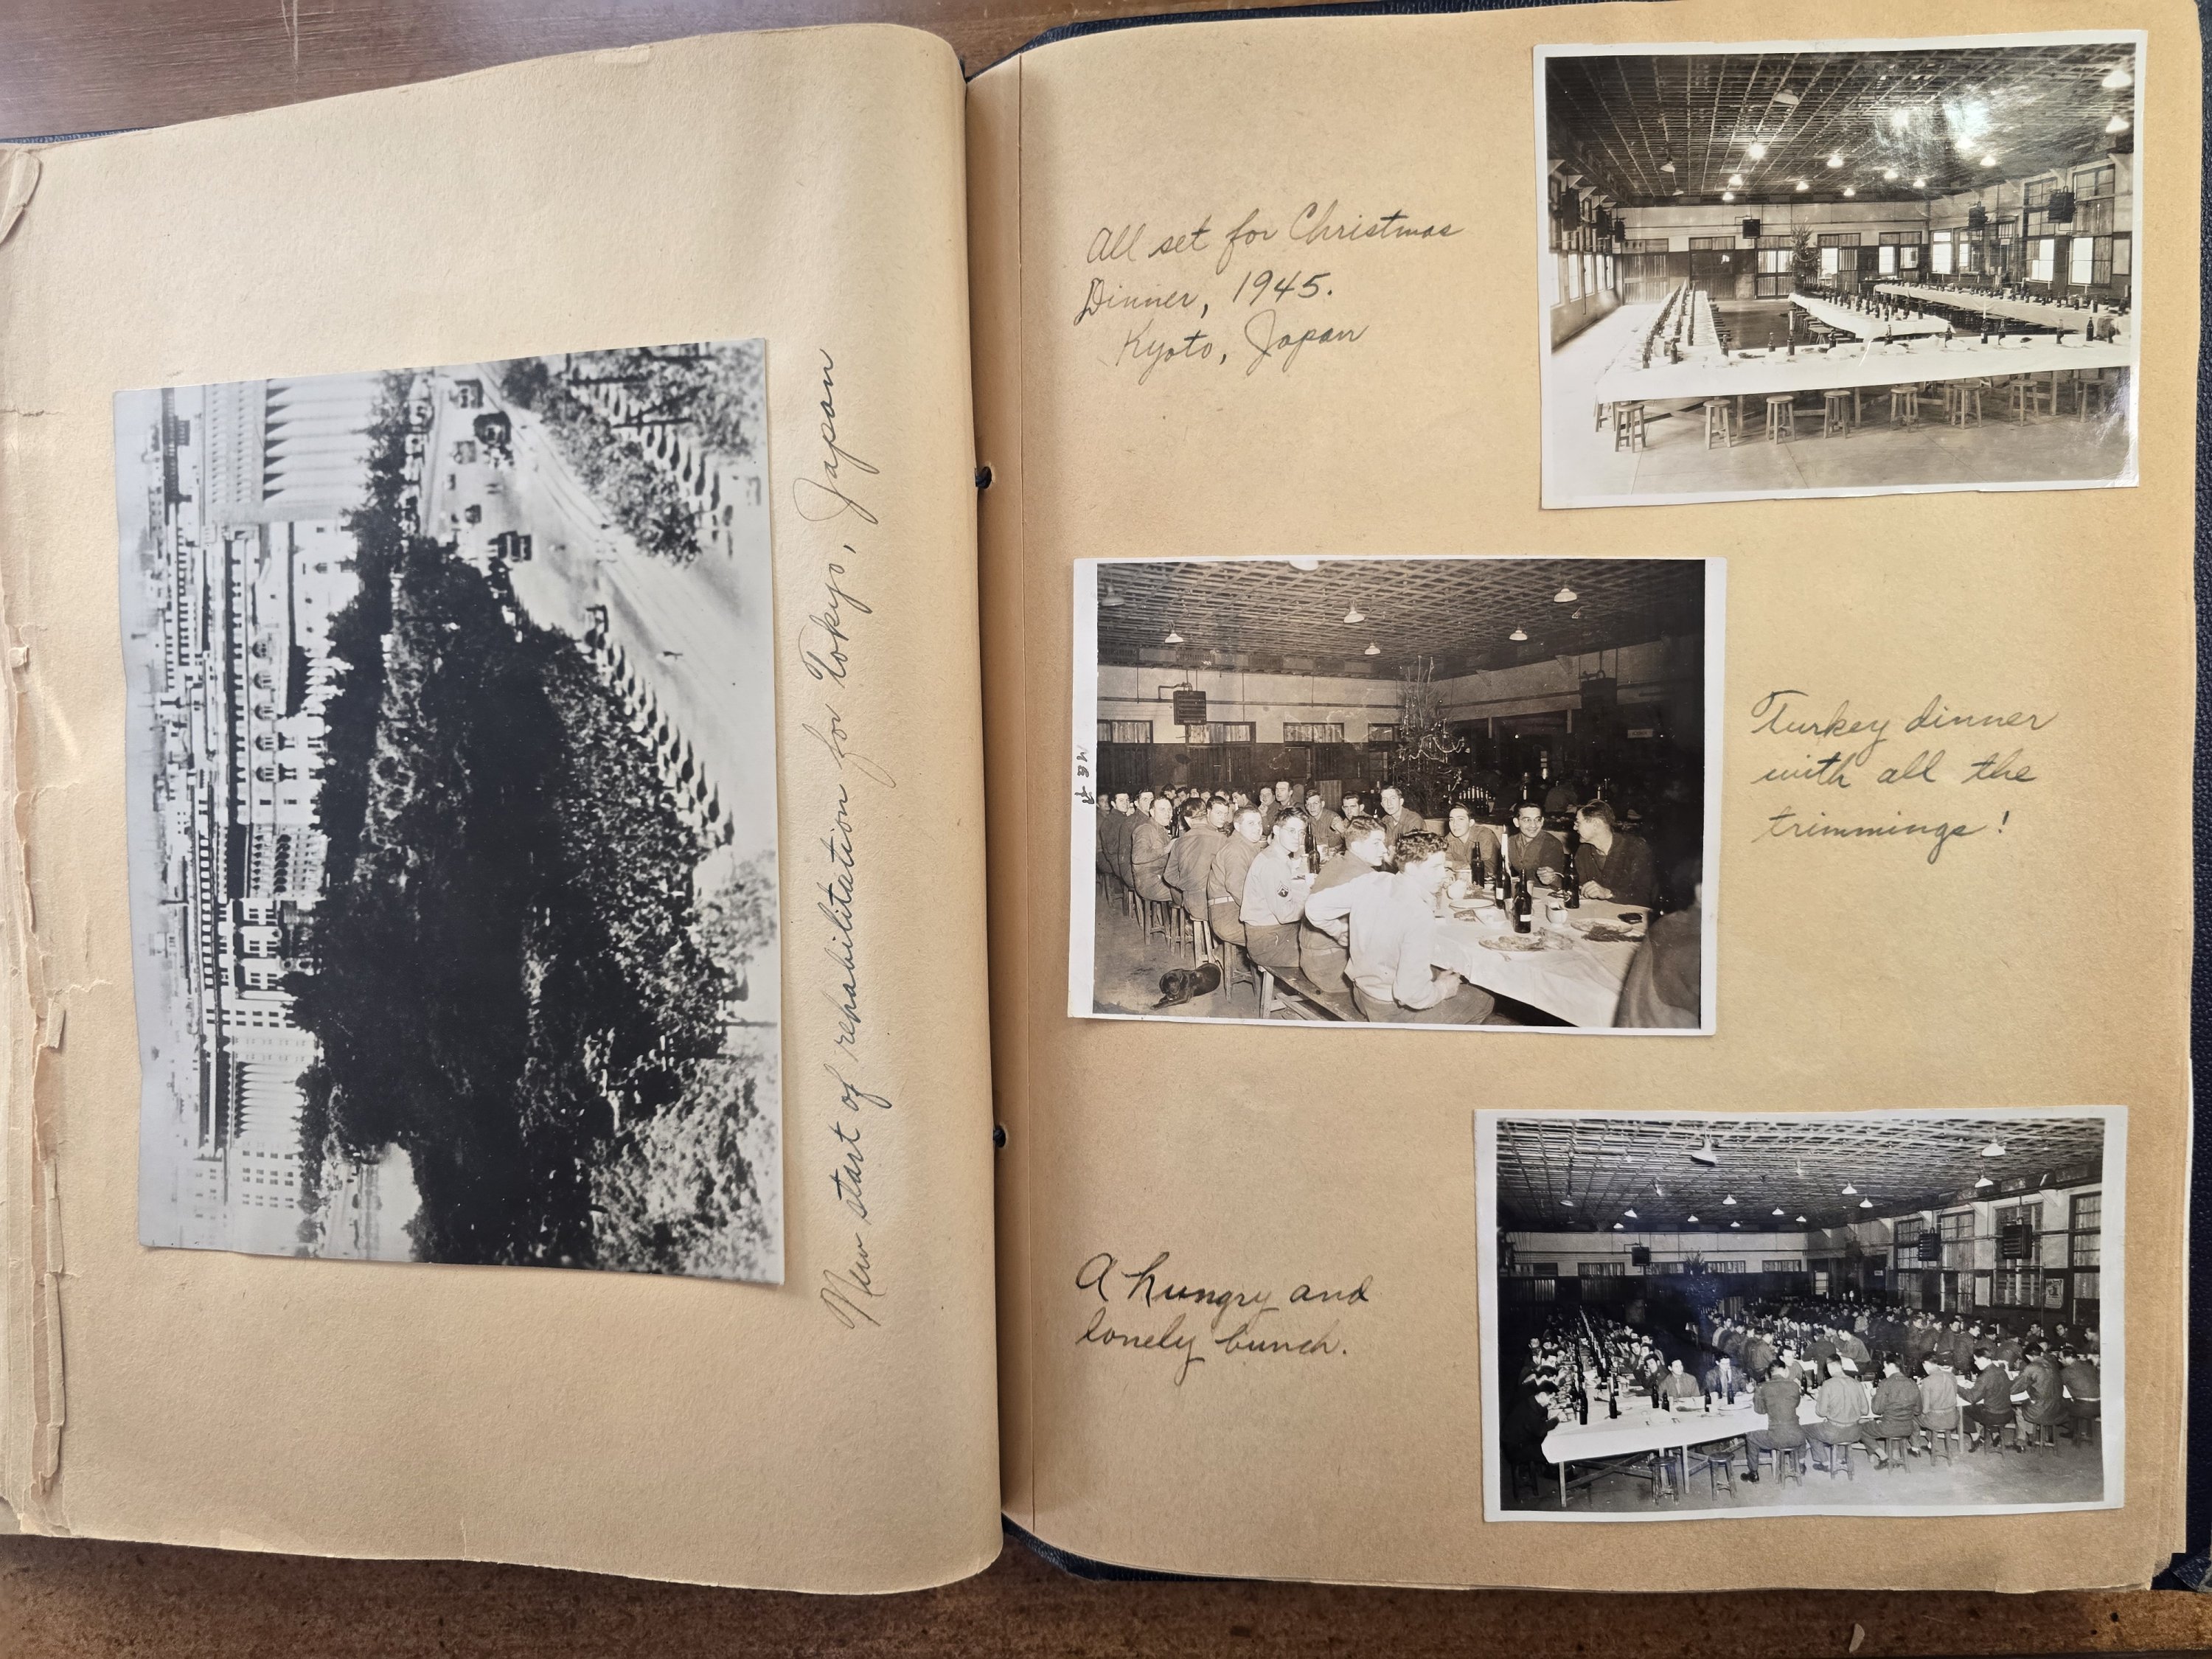 New start of rehabilitation for Tokyo, Japan
All set for Christmas
Dinner, 1945.
Kyoto, Japan
Turkey dinner
with all the
trimmings!
A hungry and
lonely bunch.